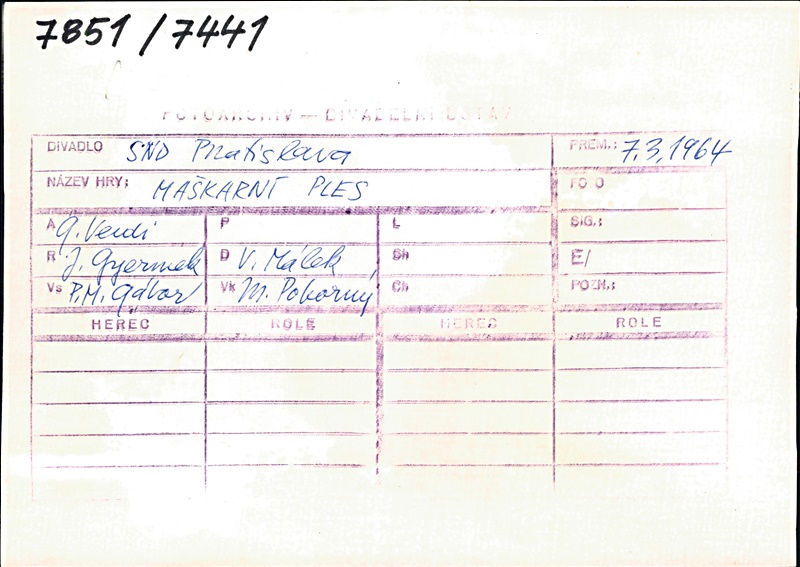 7851/7441
FOTOARCHIV — DIVADELNÍ ÚSTAV
DIVADLO SND Bratislava PREM.: 7.3.1964
NÁZEV HRY: MAŠKARNÍ PLES FOTO
A G. Verdi P L SIG.:
R J. Gyermek D V. Málek Sh E/
Vs P.M. Gábor Vk M. Pokorný Ch POZN.:
HEREC ROLE HEREC ROLE